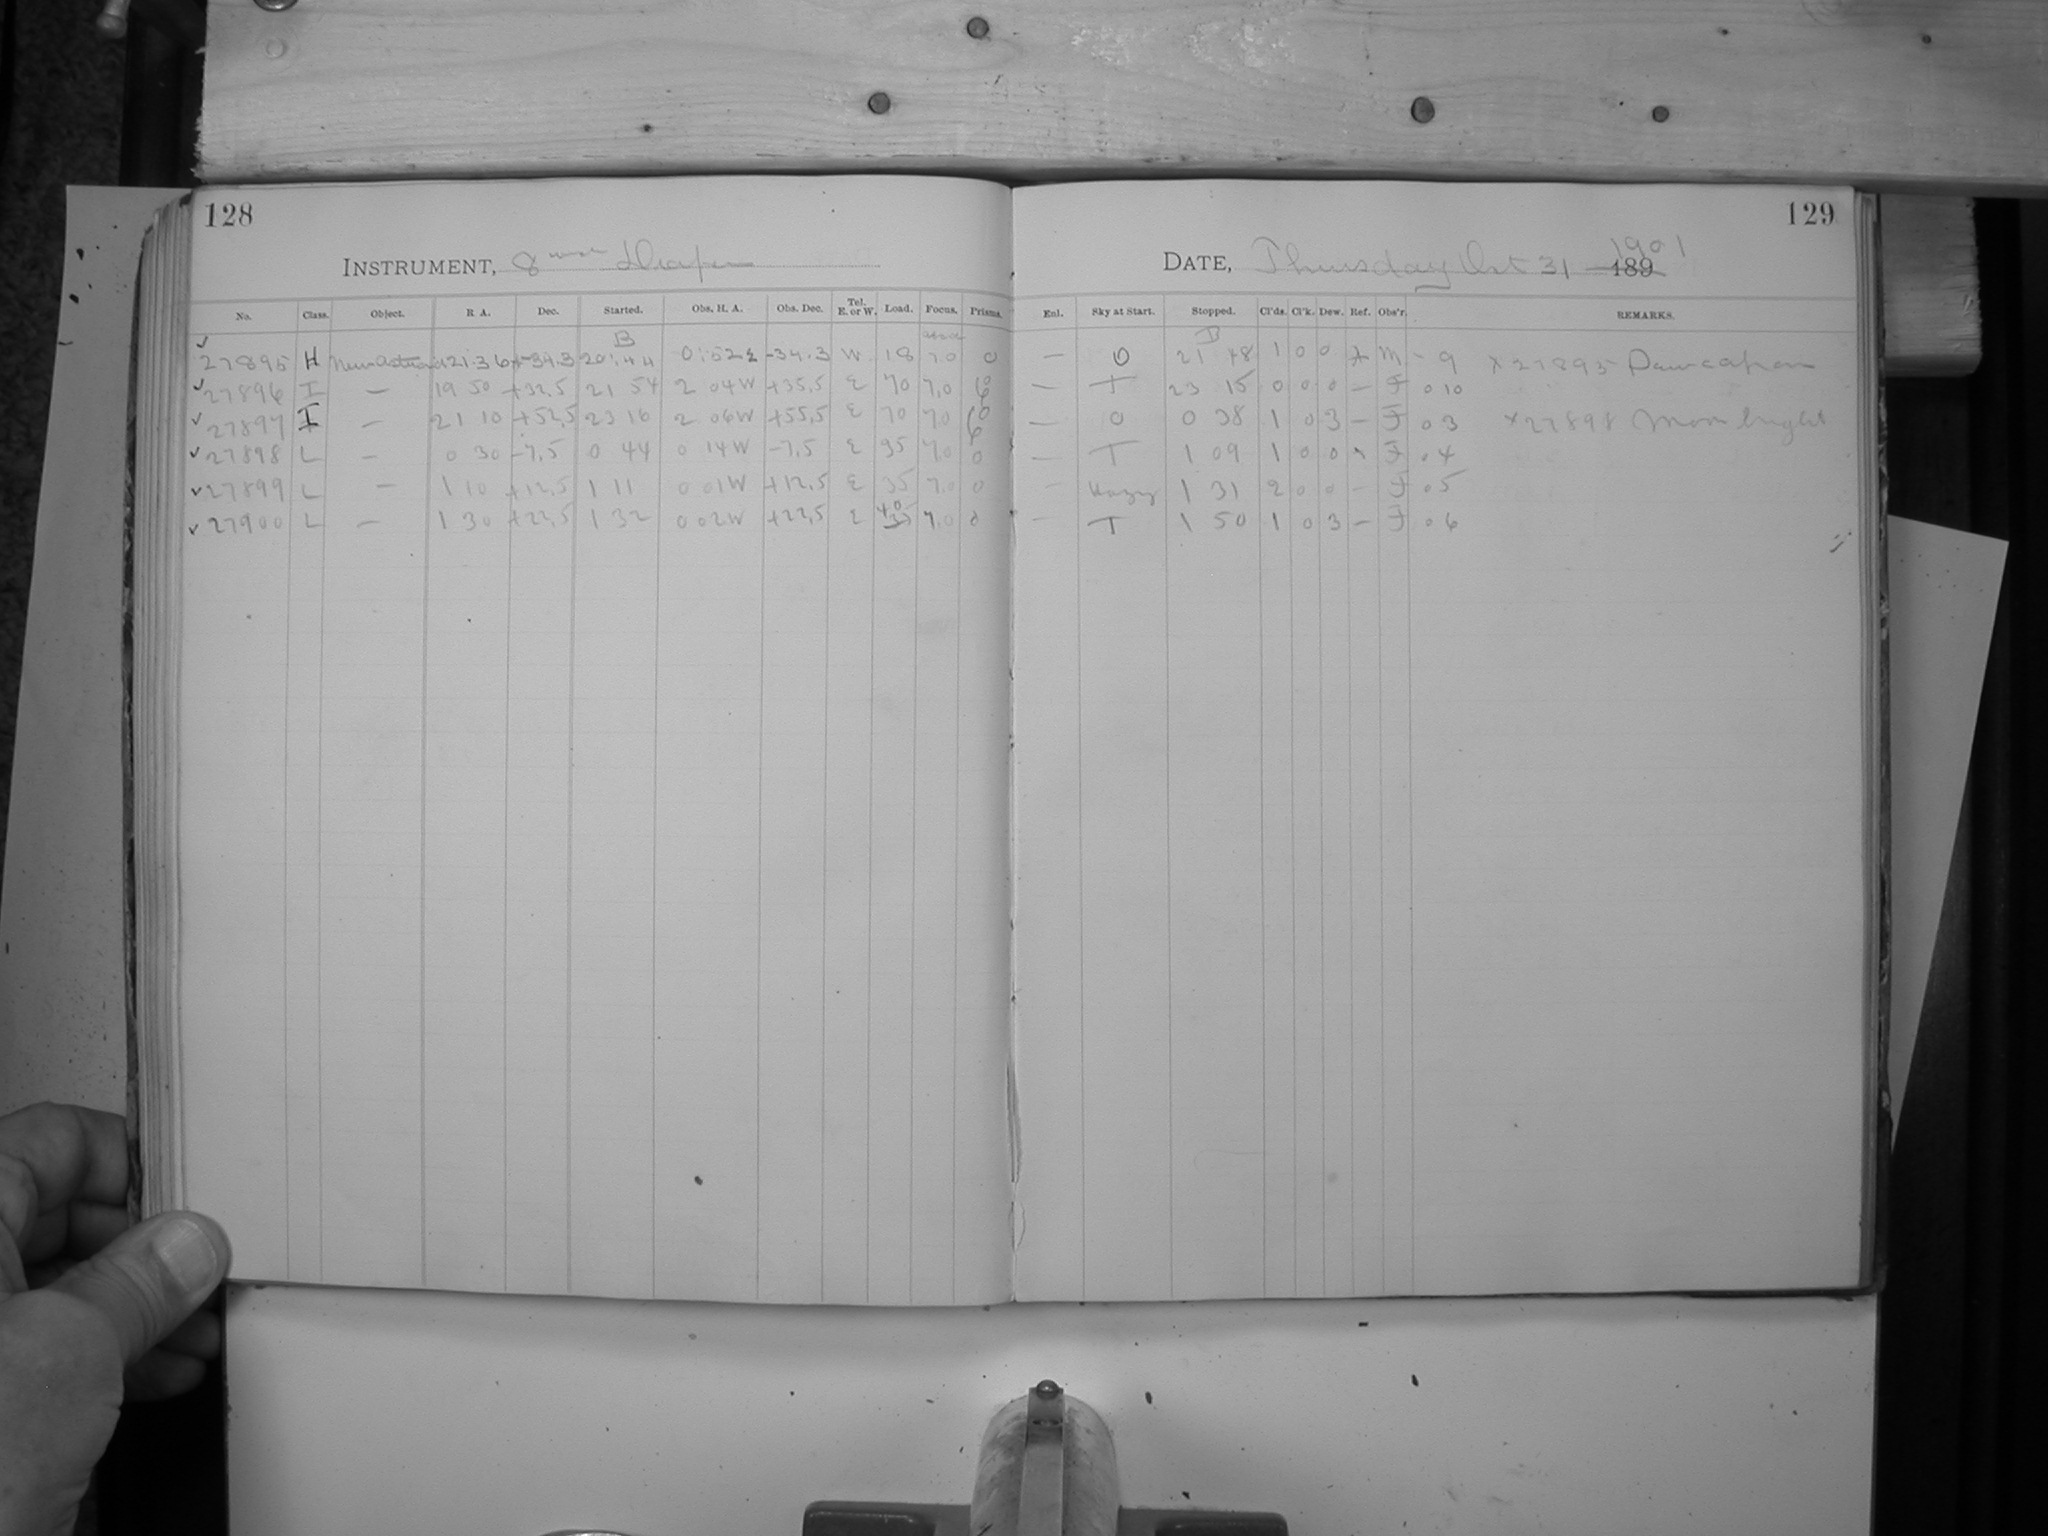 128
INSTRUMENT, 8 inch Draper
No. Class. Object. R. A. Dec. Started. Obs. H. A. Obs. Dec. Tel. E. or W. Load. Focus. Prisms.
B
✓ 27895 H 21:36 -34.3 20:44 0:52 E -34.3 W 18 7.0 0
✓ 27896 I — 19 50 +32.5 21 54 2 04W +35.5 E 70 7.0
✓ 27897 I — 21 10 +52.5 23 16 2 06W +55.5 E 70 7.0
✓ 27898 L — 0 30 -7.5 0 44 0 14W -7.5 E 35 7.0 0
✓ 27899 L — 1 10 +12.5 1 11 0 01W +12.5 E 35 7.0 0
✓ 27900 L — 1 30 +22.5 1 32 0 02W +22.5 E 7.0 0
129
DATE, Thursday Oct 31 189 1901
Enl. Sky at Start. Stopped. Cl'ds. Cl'k. Dew. Ref. Obs'r. REMARKS.
B
— 0 21 48 1 0 0 * M - 9 *27895
— T 23 15 0 0 0 — F 0 10
— 0 0 38 1 0 3 — F 0 3 *27898 Moon bright
— T 1 09 1 0 0 * F 0 4
— Hazy 1 31 2 0 0 — F 0 5
— T 1 50 1 0 3 — F 0 6